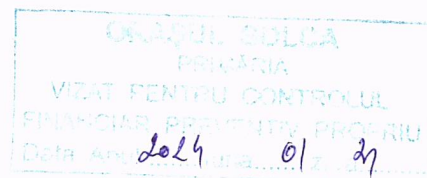 ORAȘUL SOLCA
PRIMĂRIA
VIZAT PENTRU CONTROLUL
FINANCIAR PREVENTIV PROPRIU
Data Anul 2024 Luna 01 Z